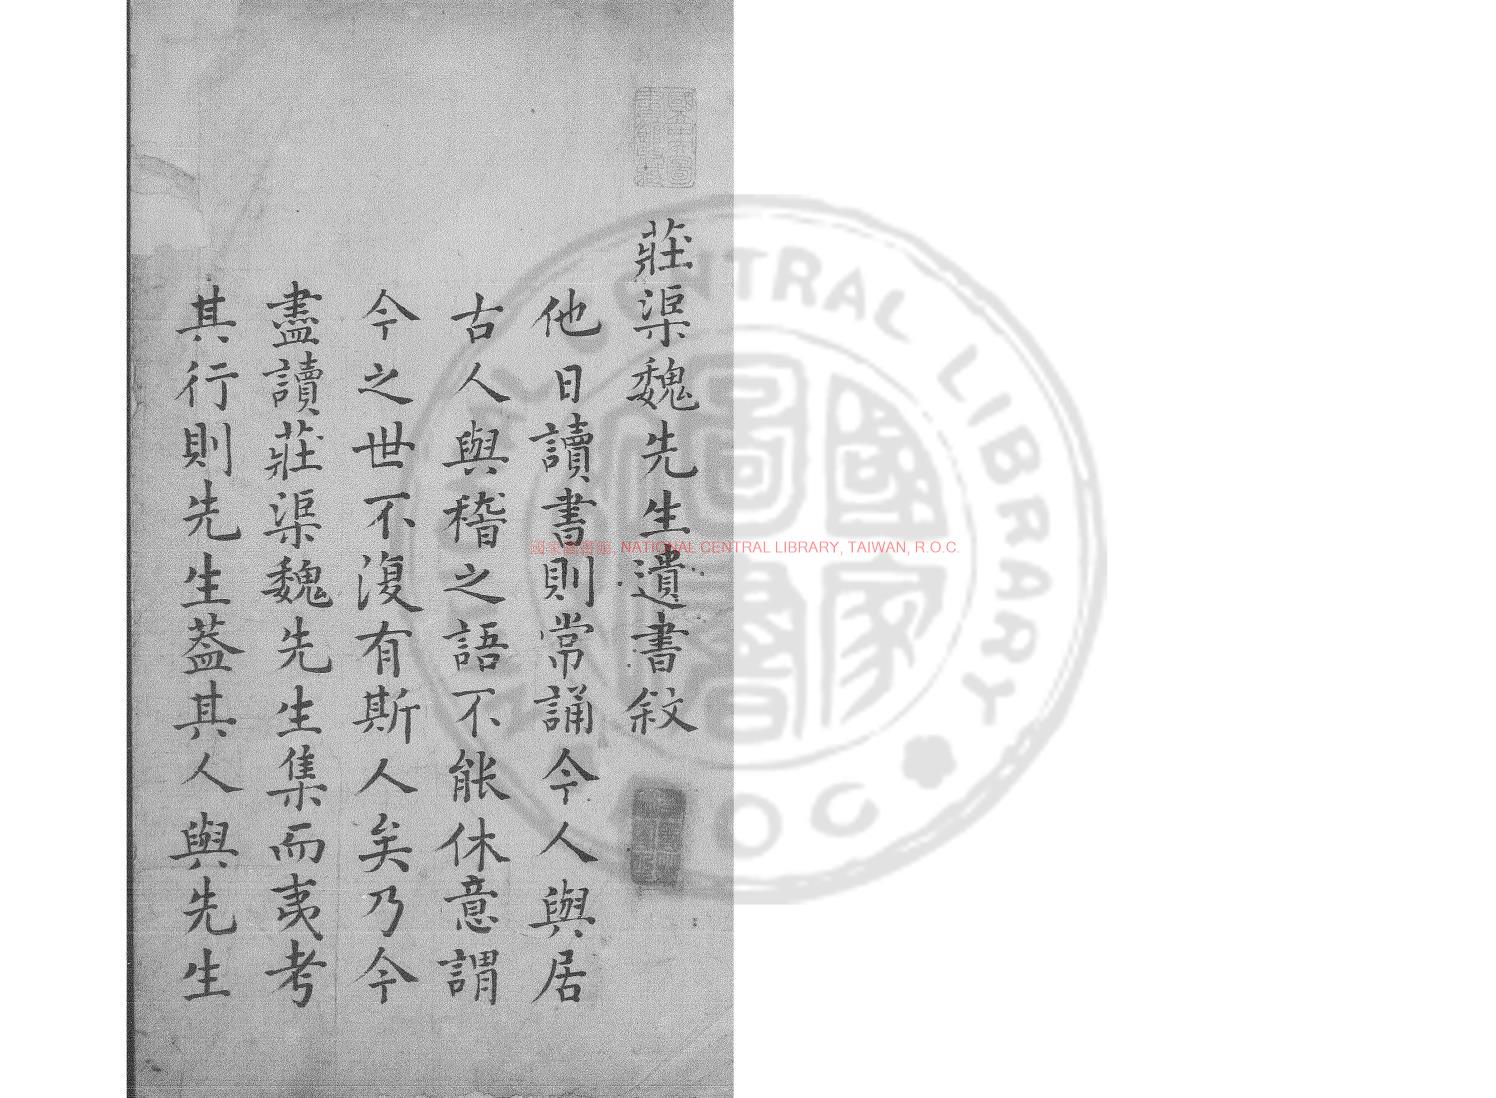 莊渠魏先生遺書敘
他日讀書則常誦今人與居
古人與稽之語不能休意謂
今之世不復有斯人矣乃今
盡讀莊渠魏先生集而夷考
其行則先生蓋其人與先生
國家圖書館, NATIONAL CENTRAL LIBRARY, TAIWAN, R.O.C.